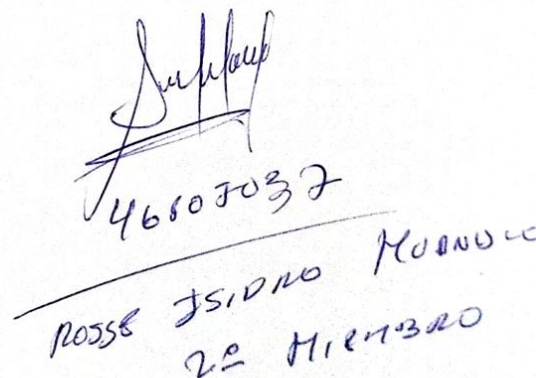 46807037
ROSSE ISIDRO
2º MIEMBRO